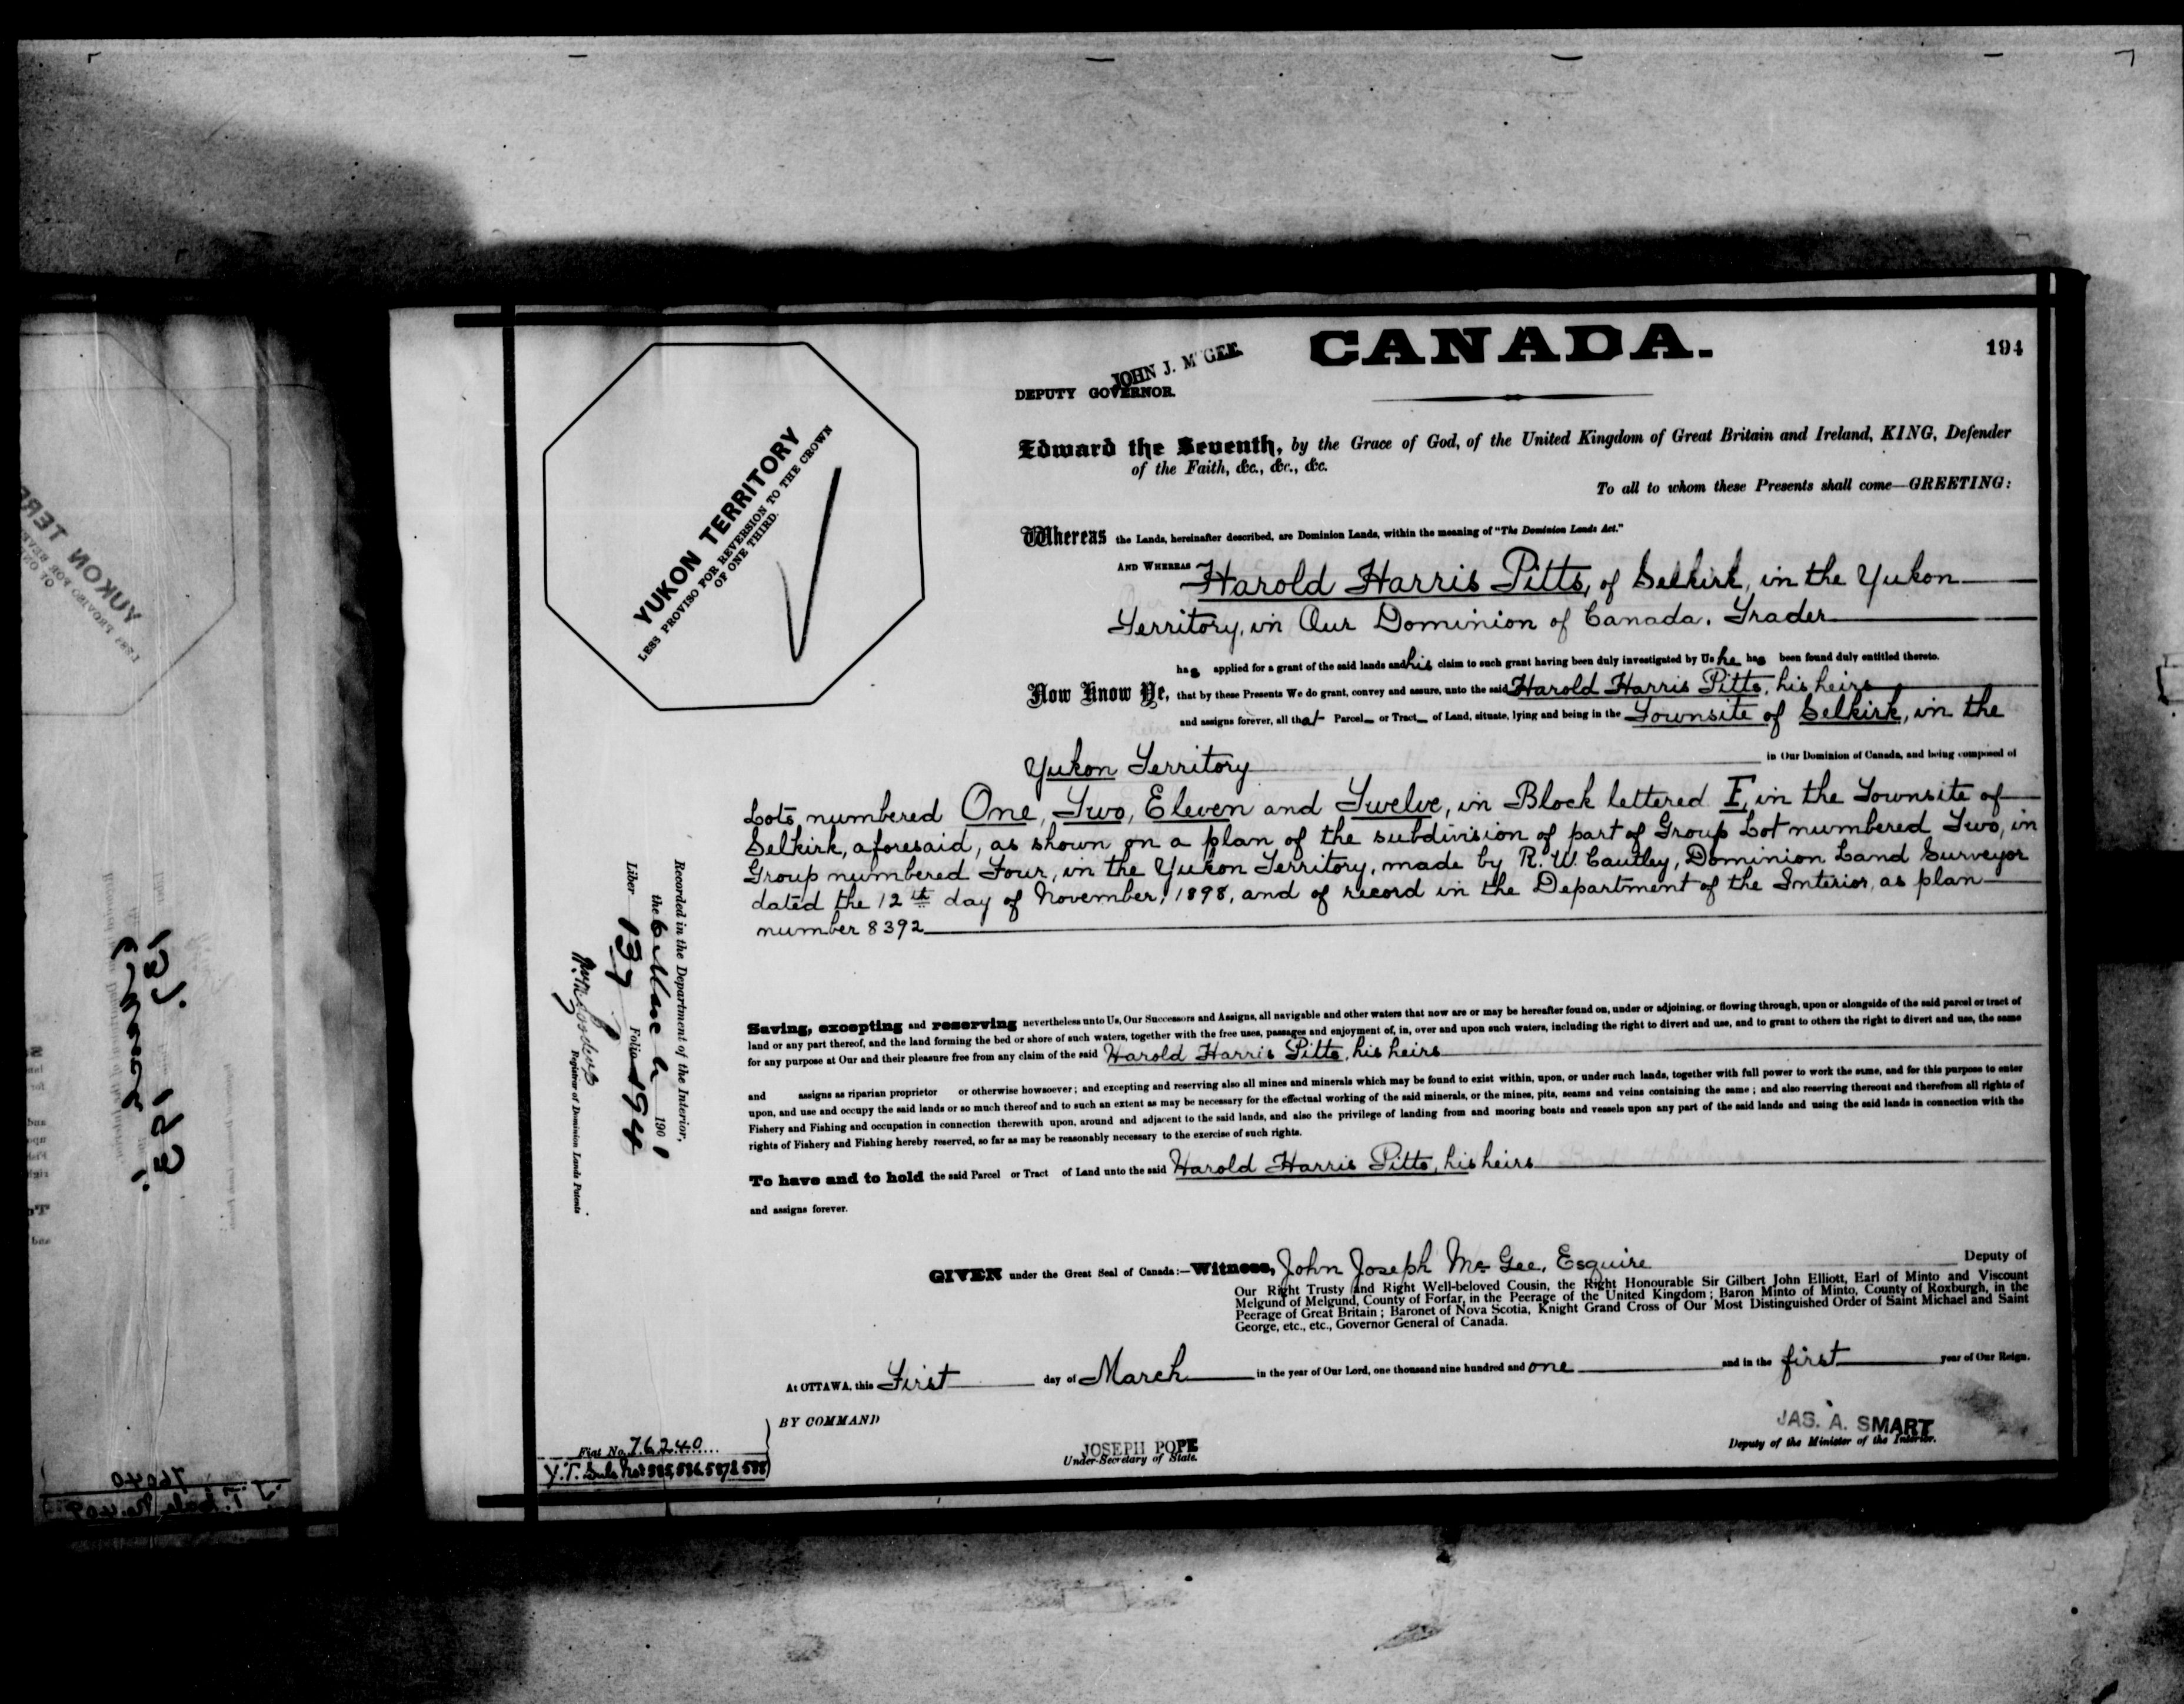 194
CANADA.
JOHN J. McGEE.
DEPUTY GOVERNOR.
YUKON TERRITORY
LESS PROVISO FOR REVERSION TO THE CROWN
OF ONE THIRD.
Edward the Seventh, by the Grace of God, of the United Kingdom of Great Britain and Ireland, KING, Defender
of the Faith, &c., &c., &c.
To all to whom these Presents shall come—GREETING:
Whereas the Lands, hereinafter described, are Dominion Lands, within the meaning of "The Dominion Lands Act."
AND WHEREAS Harold Harris Pitts, of Selkirk, in the Yukon
Territory, in Our Dominion of Canada, Trader
has applied for a grant of the said lands and his claim to such grant having been duly investigated by Us he has been found duly entitled thereto.
Now Know Ye, that by these Presents We do grant, convey and assure, unto the said Harold Harris Pitts, his heirs
and assigns forever, all that Parcel or Tract of Land, situate, lying and being in the Townsite of Selkirk, in the
Yukon Territory in Our Dominion of Canada, and being composed of
Lots numbered One, Two, Eleven and Twelve, in Block lettered E, in the Townsite of
Selkirk, aforesaid, as shown on a plan of the subdivision of part of Group Lot numbered Two, in
Group numbered Four, in the Yukon Territory, made by R. W. Cautley, Dominion Land Surveyor
dated the 12th day of November, 1898, and of record in the Department of the Interior, as plan
number 8392
Recorded in the Department of the Interior,
the 6 March 1901
Liber 137 Folio 194
Registrar of Dominion Lands Patents
Saving, excepting and reserving nevertheless unto Us, Our Successors and Assigns, all navigable and other waters that now are or may be hereafter found on, under or adjoining, or flowing through, upon or alongside of the said parcel or tract of
land or any part thereof, and the land forming the bed or shore of such waters, together with the free uses, passages and enjoyment of, in, over and upon such waters, including the right to divert and use, and to grant to others the right to divert and use, the same
for any purpose at Our and their pleasure free from any claim of the said Harold Harris Pitts, his heirs
and assigns as riparian proprietor or otherwise howsoever; and excepting and reserving also all mines and minerals which may be found to exist within, upon, or under such lands, together with full power to work the same, and for this purpose to enter
upon, and use and occupy the said lands or so much thereof and to such an extent as may be necessary for the effectual working of the said minerals, or the mines, pits, seams and veins containing the same; and also reserving thereout and therefrom all rights of
Fishery and Fishing and occupation in connection therewith upon, around and adjacent to the said lands, and also the privilege of landing from and mooring boats and vessels upon any part of the said lands and using the said lands in connection with the
rights of Fishery and Fishing hereby reserved, so far as may be reasonably necessary to the exercise of such rights.
To have and to hold the said Parcel or Tract of Land unto the said Harold Harris Pitts, his heirs
and assigns forever.
GIVEN under the Great Seal of Canada:—Witness, John Joseph McGee, Esquire Deputy of
Our Right Trusty and Right Well-beloved Cousin, the Right Honourable Sir Gilbert John Elliott, Earl of Minto and Viscount
Melgund of Melgund, County of Forfar, in the Peerage of the United Kingdom; Baron Minto of Minto, County of Roxburgh, in the
Peerage of Great Britain; Baronet of Nova Scotia, Knight Grand Cross of Our Most Distinguished Order of Saint Michael and Saint
George, etc., etc., Governor General of Canada.
At OTTAWA, this First day of March in the year of Our Lord, one thousand nine hundred and one and in the first year of Our Reign.
BY COMMAND
JOSEPH POPE
Under-Secretary of State.
JAS. A. SMART
Deputy of the Minister of the Interior.
Fiat No. 76240
Y.T. Sale Nos 585, 586, 587 & 588